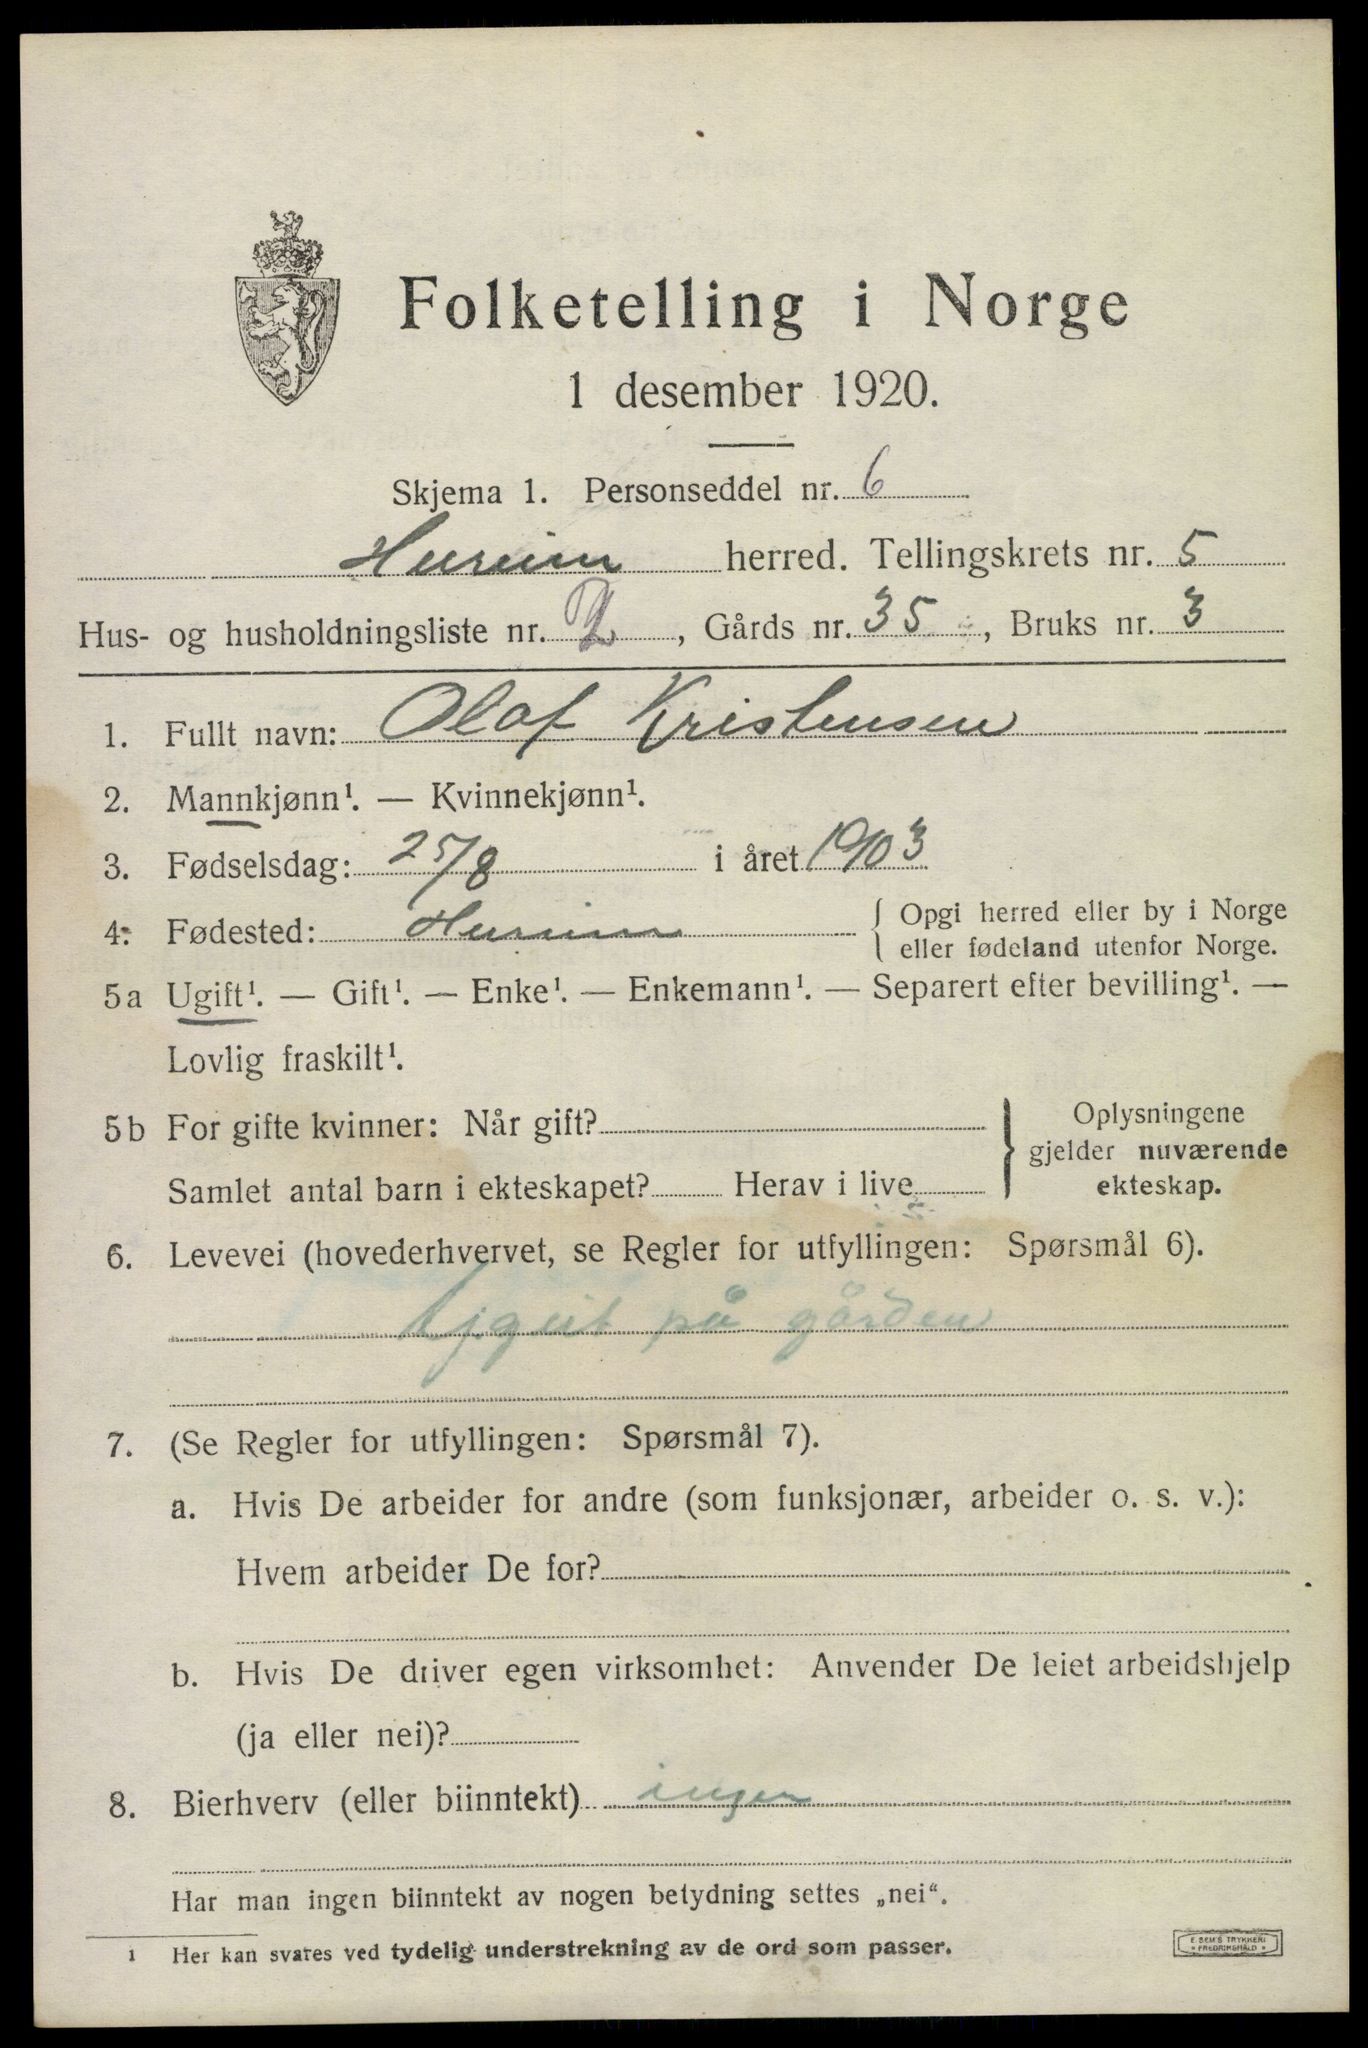 Folketelling i Norge
1 desember 1920.
Skjema 1. Personseddel nr. 6
Hurum herred. Tellingskrets nr. 5
Hus- og husholdningsliste nr. 2, Gårds nr. 35, Bruks nr. 3
1. Fullt navn: Olaf Kristensen
2. Mannkjønn¹. — Kvinnekjønn¹.
3. Fødselsdag: 25/8 i året 1903
4. Fødested: Hurum { Opgi herred eller by i Norge
eller fødeland utenfor Norge.
5a Ugift¹. — Gift¹. — Enke¹. — Enkemann¹. — Separert efter bevilling¹. —
Lovlig fraskilt¹.
5b For gifte kvinner: Når gift?
Samlet antal barn i ekteskapet? Herav i live
} Oplysningene
gjelder nuværende
ekteskap.
6. Levevei (hovederhvervet, se Regler for utfyllingen: Spørsmål 6).
på gården
7. (Se Regler for utfyllingen: Spørsmål 7).
a. Hvis De arbeider for andre (som funksjonær, arbeider o. s. v.):
Hvem arbeider De for?
b. Hvis De driver egen virksomhet: Anvender De leiet arbeidshjelp
(ja eller nei)?
8. Bierhverv (eller biinntekt) ingen
Har man ingen biinntekt av nogen betydning settes „nei“.
1 Her kan svares ved tydelig understrekning av de ord som passer.
E. SEM'S TRYKKERI
* FREDRIKSHALD *